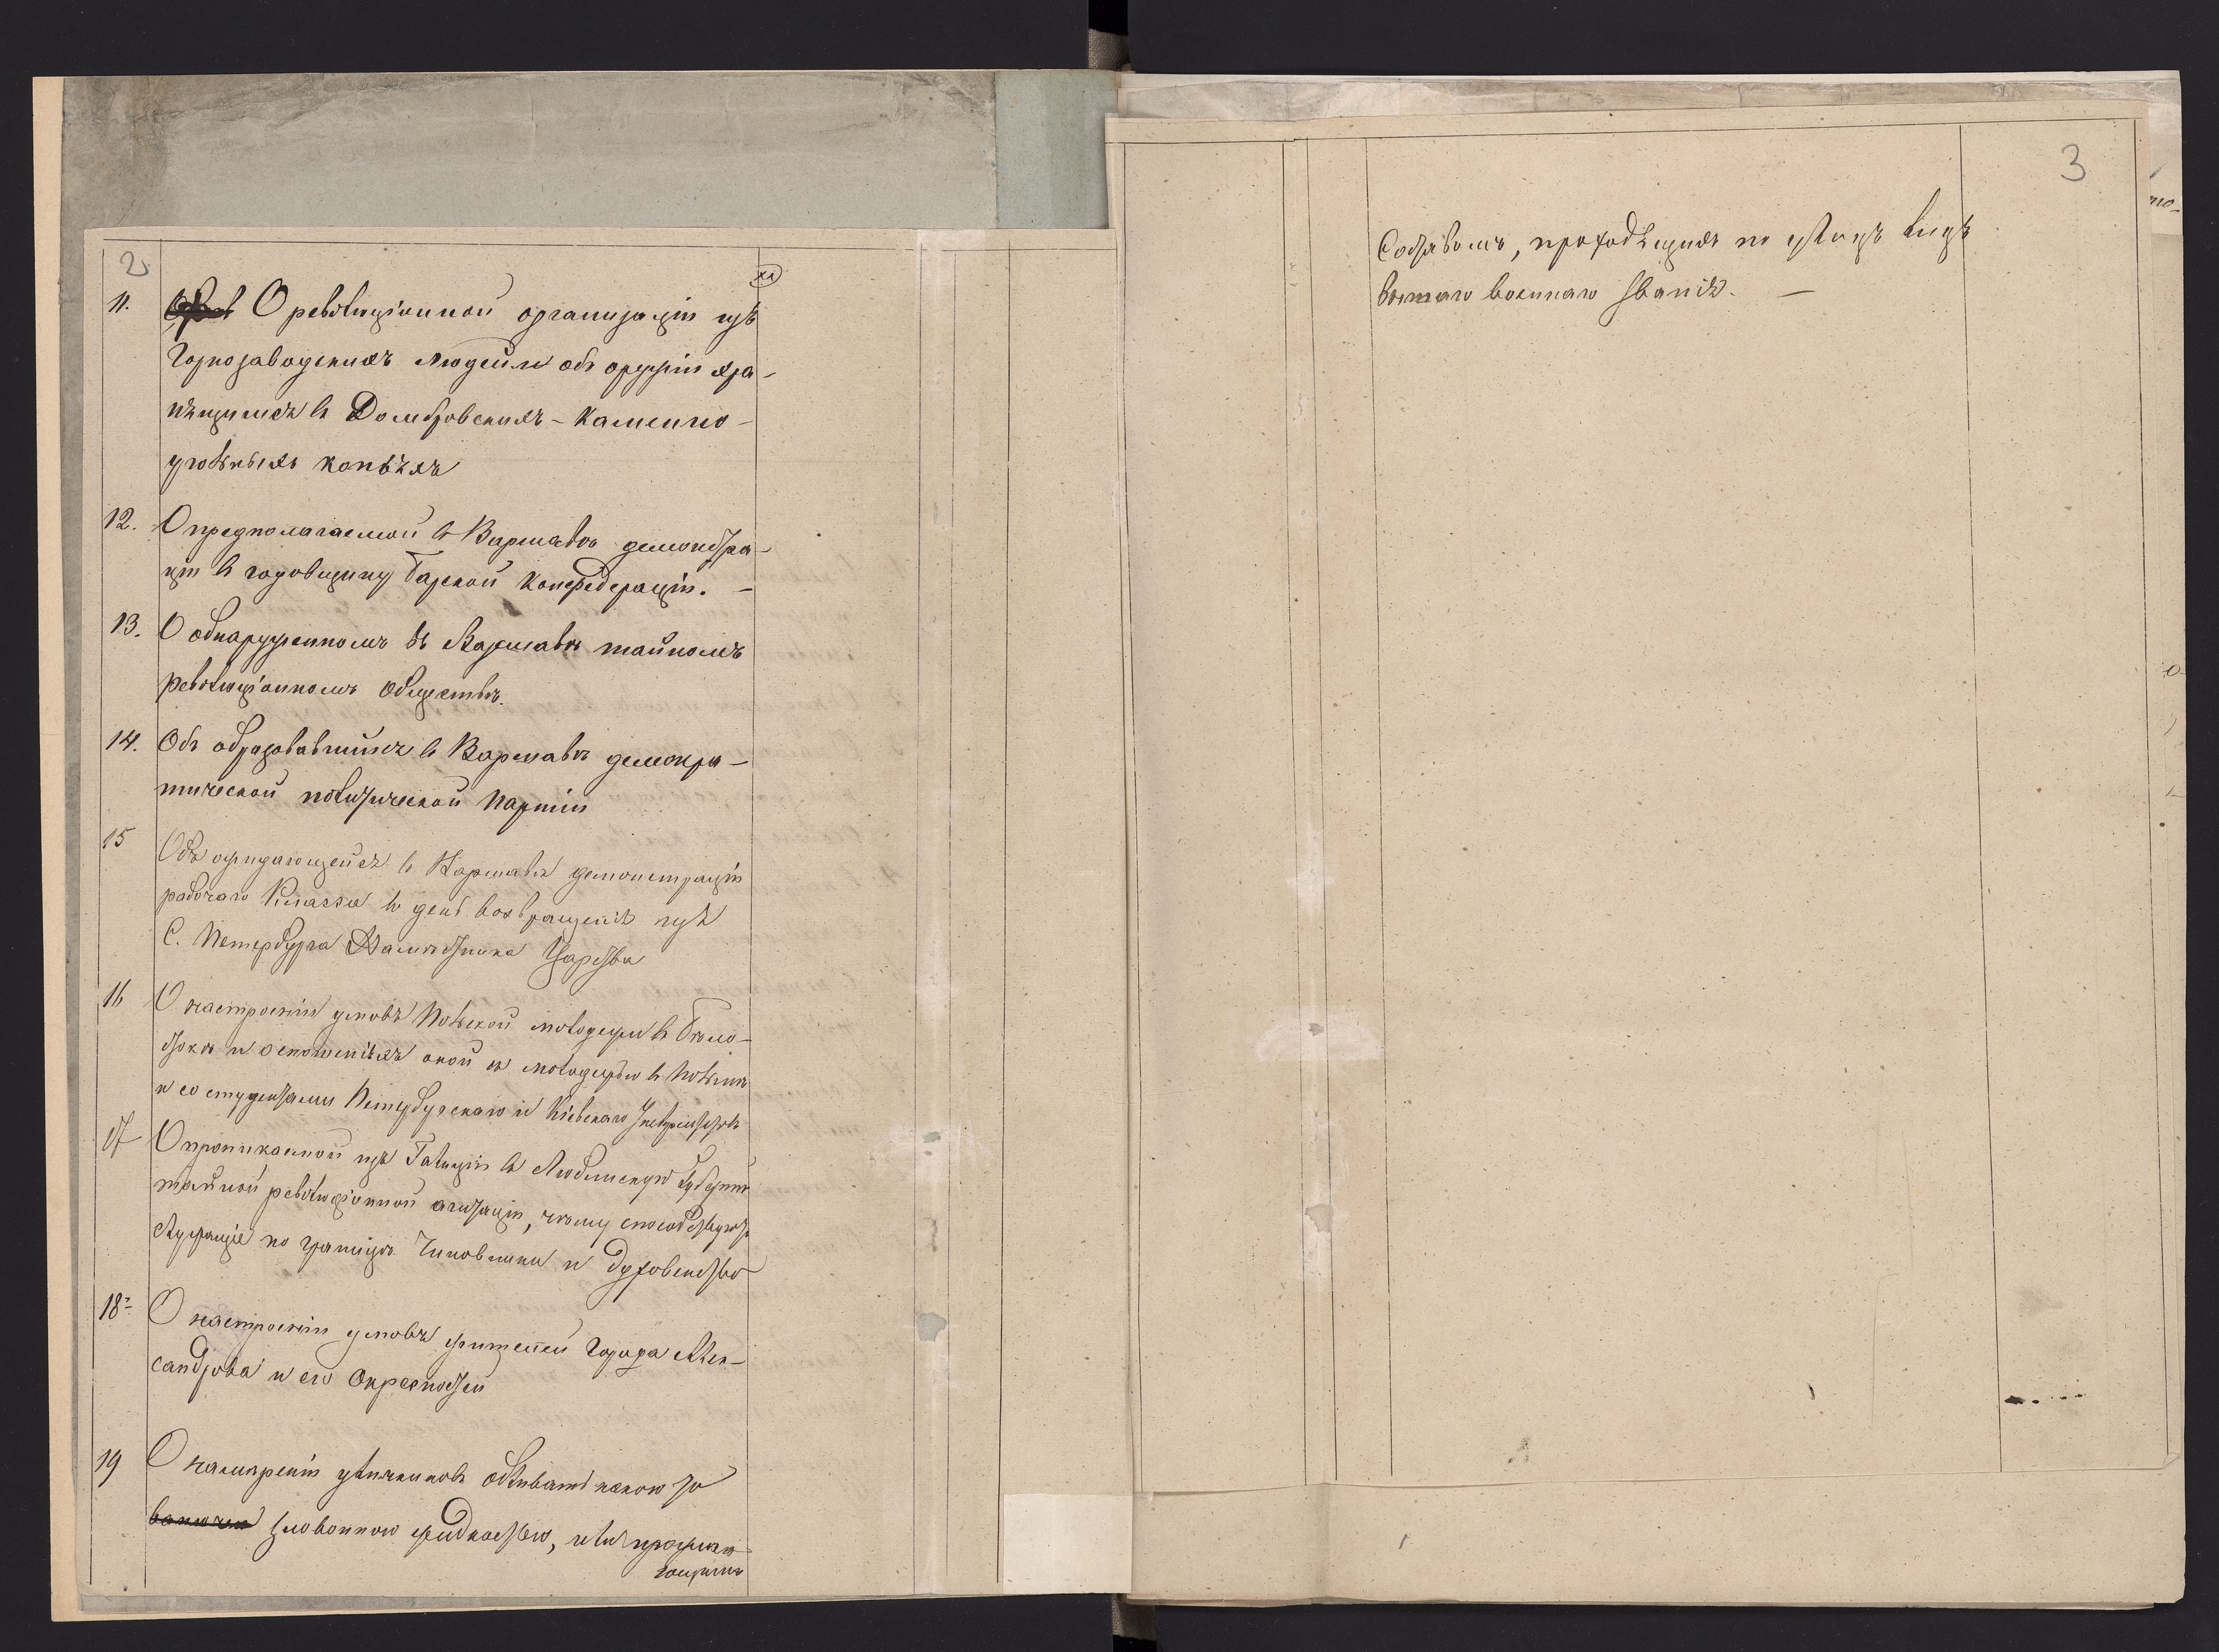 2
11. О революціонной организаціи изъ
Горнозаводскихъ людей и объ оружіи хра-
нящимся въ Домбровскихъ-каменно-
угольныхъ копяхъ
12. О предполагаемой въ Варшавѣ демонстра-
ціи въ годовщину Барской Конфедераціи. —
13. О обнаруженномъ въ Варшавѣ тайномъ
революціонномъ обществѣ.
14. Объ образовавшийся въ Варшавѣ демокра-
тической политической партіи
15 Объ ожидающейся въ Варшавѣ демонстраціи
рабочаго класса въ день возвращенія изъ
С. Петербурга Намѣстника Царства
16 О настроеніи умовъ Польской молодежи въ Бѣло-
стокѣ и сношеніяхъ оной съ молодежью въ Польшѣ
и со студентами Петербургскаго и Кіевскаго Университетовъ
17 О проникаемой изъ Галиціи въ Люблинскую Губернію
тайной революціонной агитаціи, чему способствуютъ
служащіе по границѣ чиновники и духовенство
18 О настроеніи умовъ жителей города Алек-
сандрова и его окрестностей
19 О намѣреніи уличниковъ обливать какою то
зловонною жидкостью, или
3
проходящихъ по улицѣ лицъ
военнаго званія. —